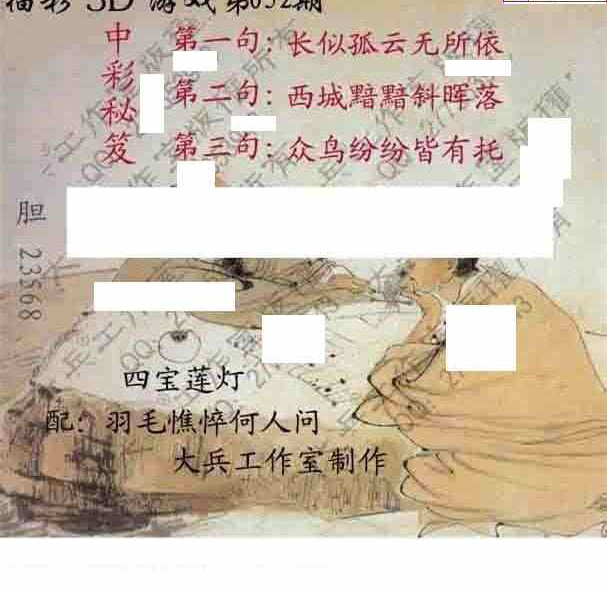 福彩 3D 游戏 第052期
中彩秘笈
第一句: 长似孤云无所依
第二句: 西城黯黯斜晖落
第三句: 众鸟纷纷皆有托
胆 23568
四宝莲灯
配: 羽毛憔悴何人问
大兵工作室制作